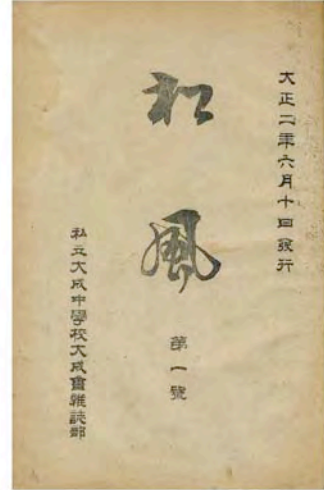 大正二年六月十日發行
松風
第一號
私立大成中學校大成會雜誌部